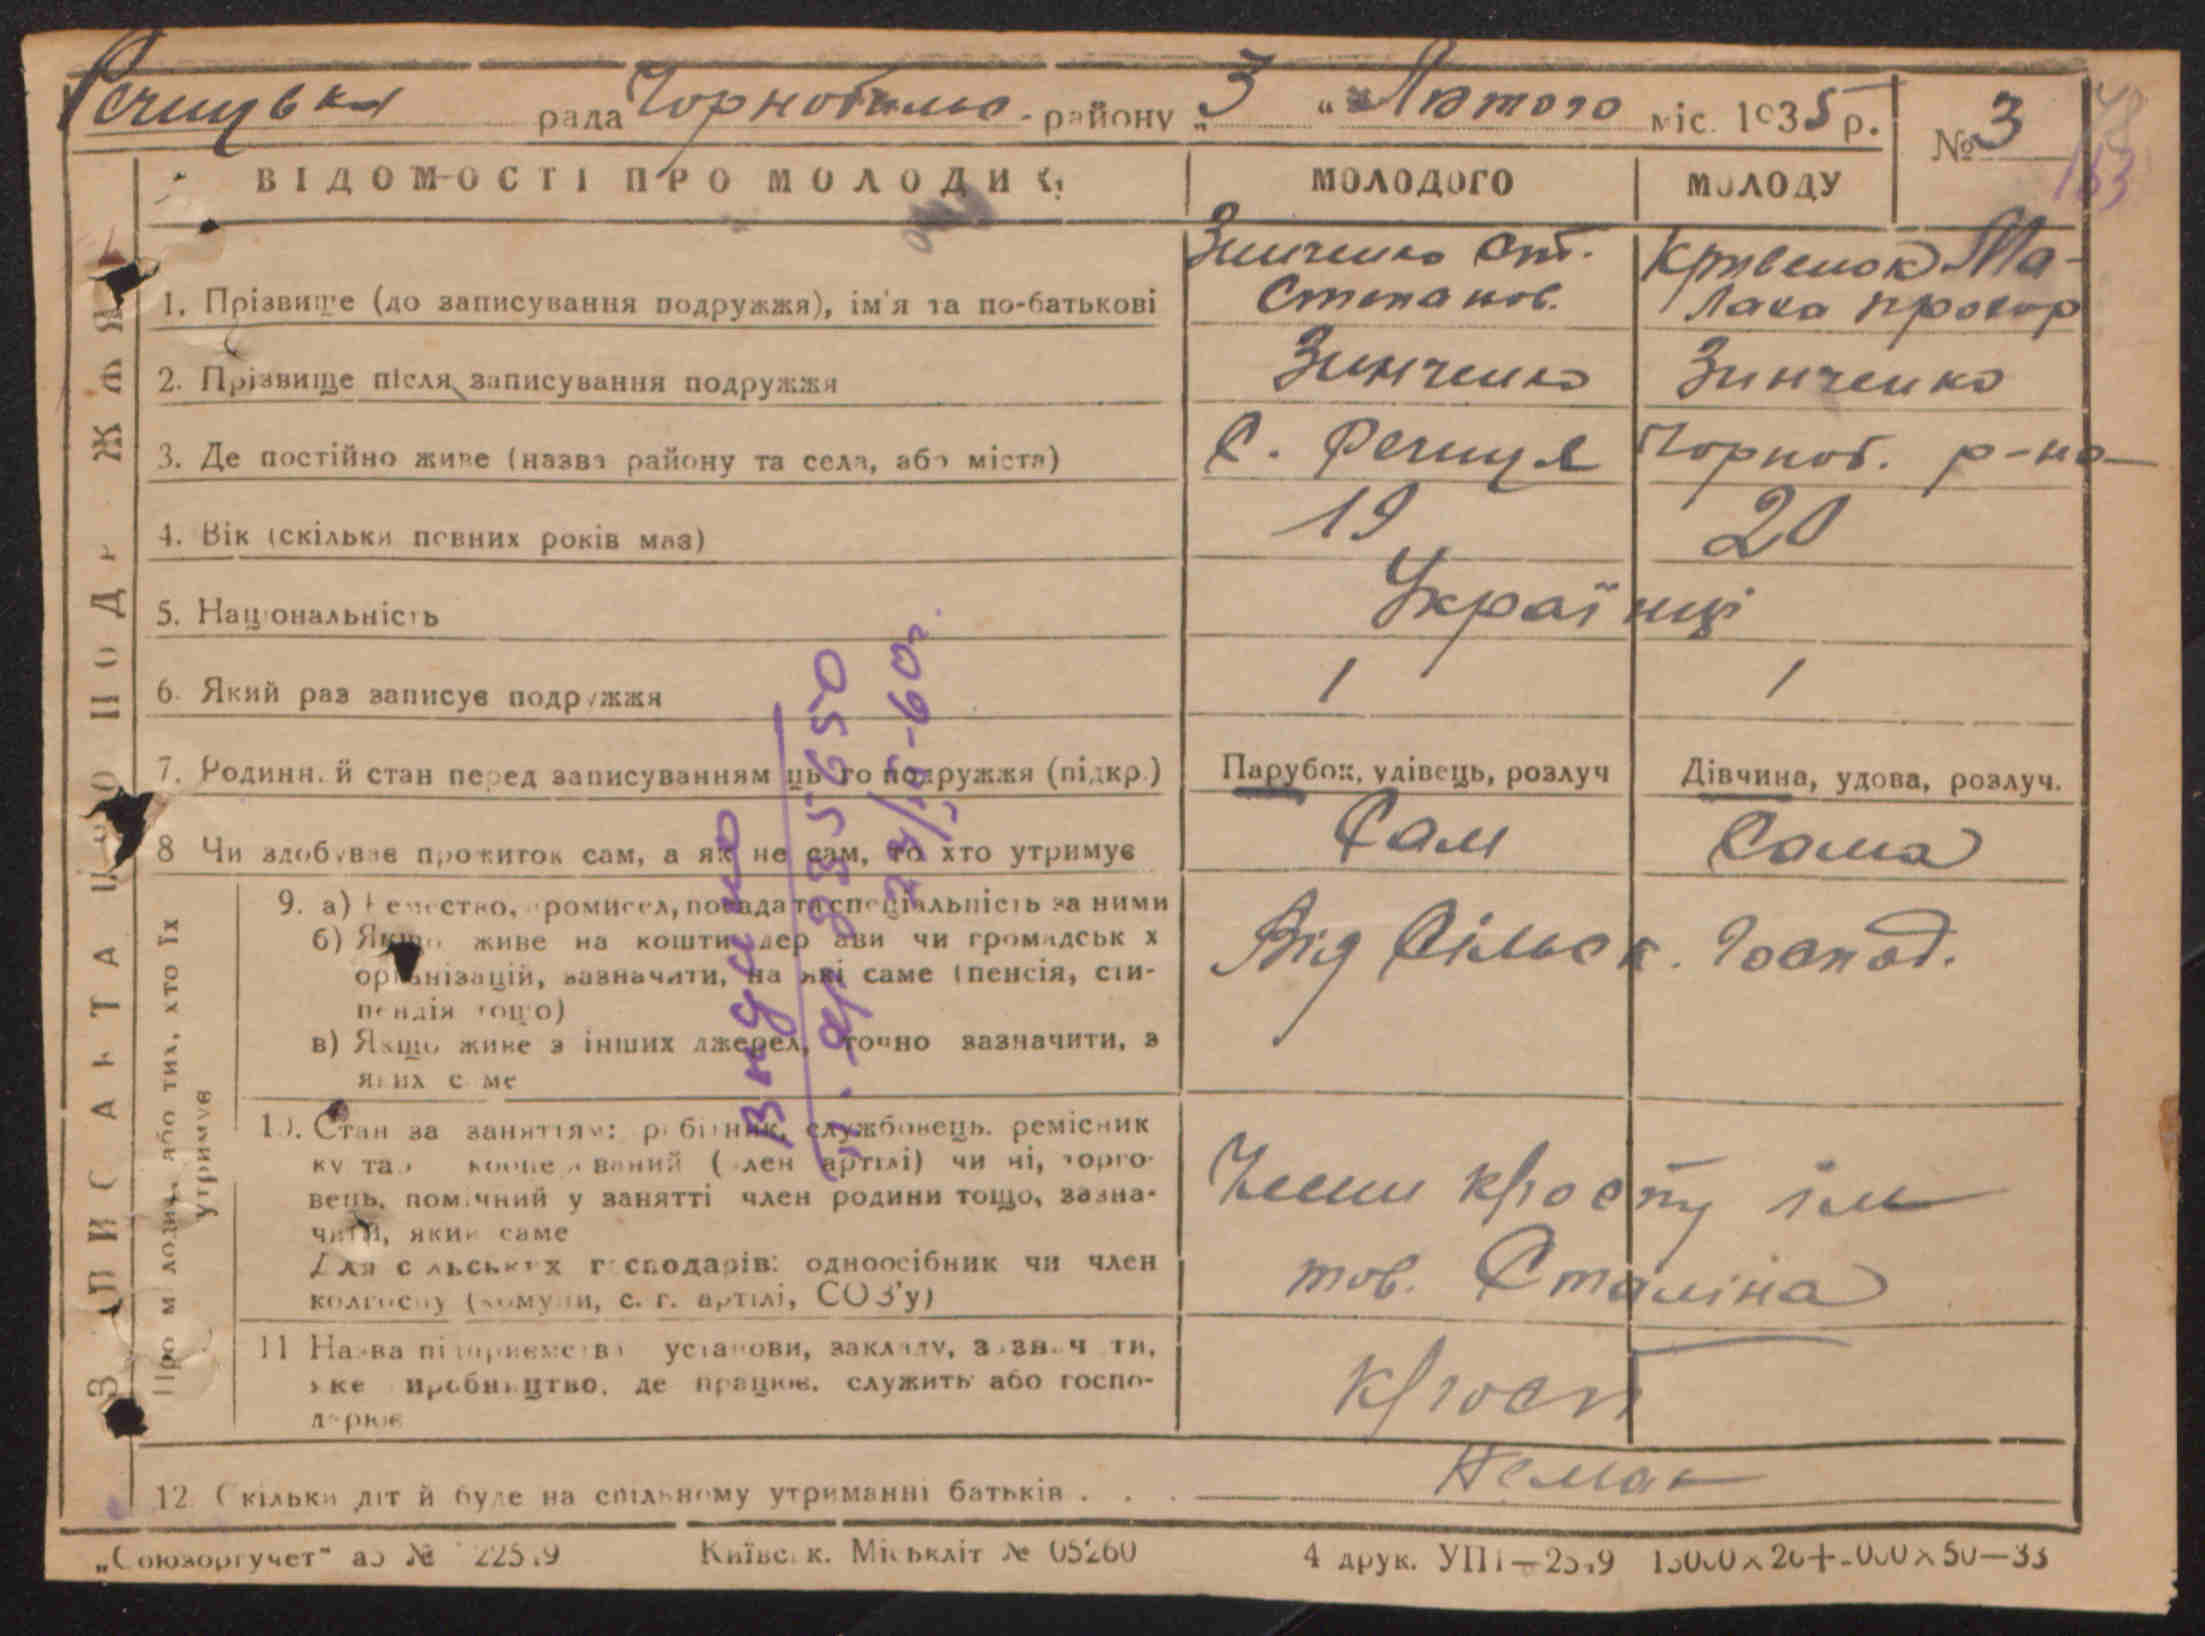 Речицька рада Чорнобильс. району „3" Лютого міс. 1935 р. № 3
48
163
ВІДОМОСТІ ПРО МОЛОДИХ МОЛОДОГО МОЛОДУ
ЗАПИС АКТА ПРО ПОДРУЖЖЯ
1. Прізвище (до записування подружжя), ім'я та по-батькові
Зинченко Ст. Степанов.
Кривенок Малаха Прохор
2. Прізвище після записування подружжя Зинченко Зинченко
3. Де постійно живе (назва району та села, або міста) С. Речиця Чорноб. р-на
4. Вік (скільки повних років має) 19 20
5. Національність Українці
6. Який раз записує подружжя 1 1
7. Родинний стан перед записуванням цього подружжя (підкр.) Парубок, удівець, розлуч Дівчина, удова, розлуч.
8 Чи здобуває прожиток сам, а як не сам, то хто утримує Сам Сама
Про молодих, або тих, хто їх утримує
9. а) Ремество, промисел, посада та спеціальність за ними
б) Якщо живе на кошти держави чи громадських
організацій, зазначити, на які саме (пенсія, сти-
пендія тощо)
в) Якщо живе з інших джерел, точно зазначити, з
яких саме
Від Сільськ. Господ.
10. Стан за заняттям: робітник, службовець, ремісник
кустар кооперований (член артілі) чи ні, торго-
вець, помічний у занятті член родини тощо, зазна-
чити, який саме
Для сільських господарів: одноосібник чи член
колгоспу (комуни, с. г. артілі, СОЗ'у)
Члени к/госпу ім
тов. Сталіна
11 Назва підприємства, установи, закладу, зазначити,
яке виробництво, де працює, служить або госпо-
дарює
к/госп
12. Скільки дітей буде на спільному утриманні батьків . . . Немає
Видано
935650
23/5-60г.
„Союзоргучет" Київськ. Міськліт № 05260 4 друк.